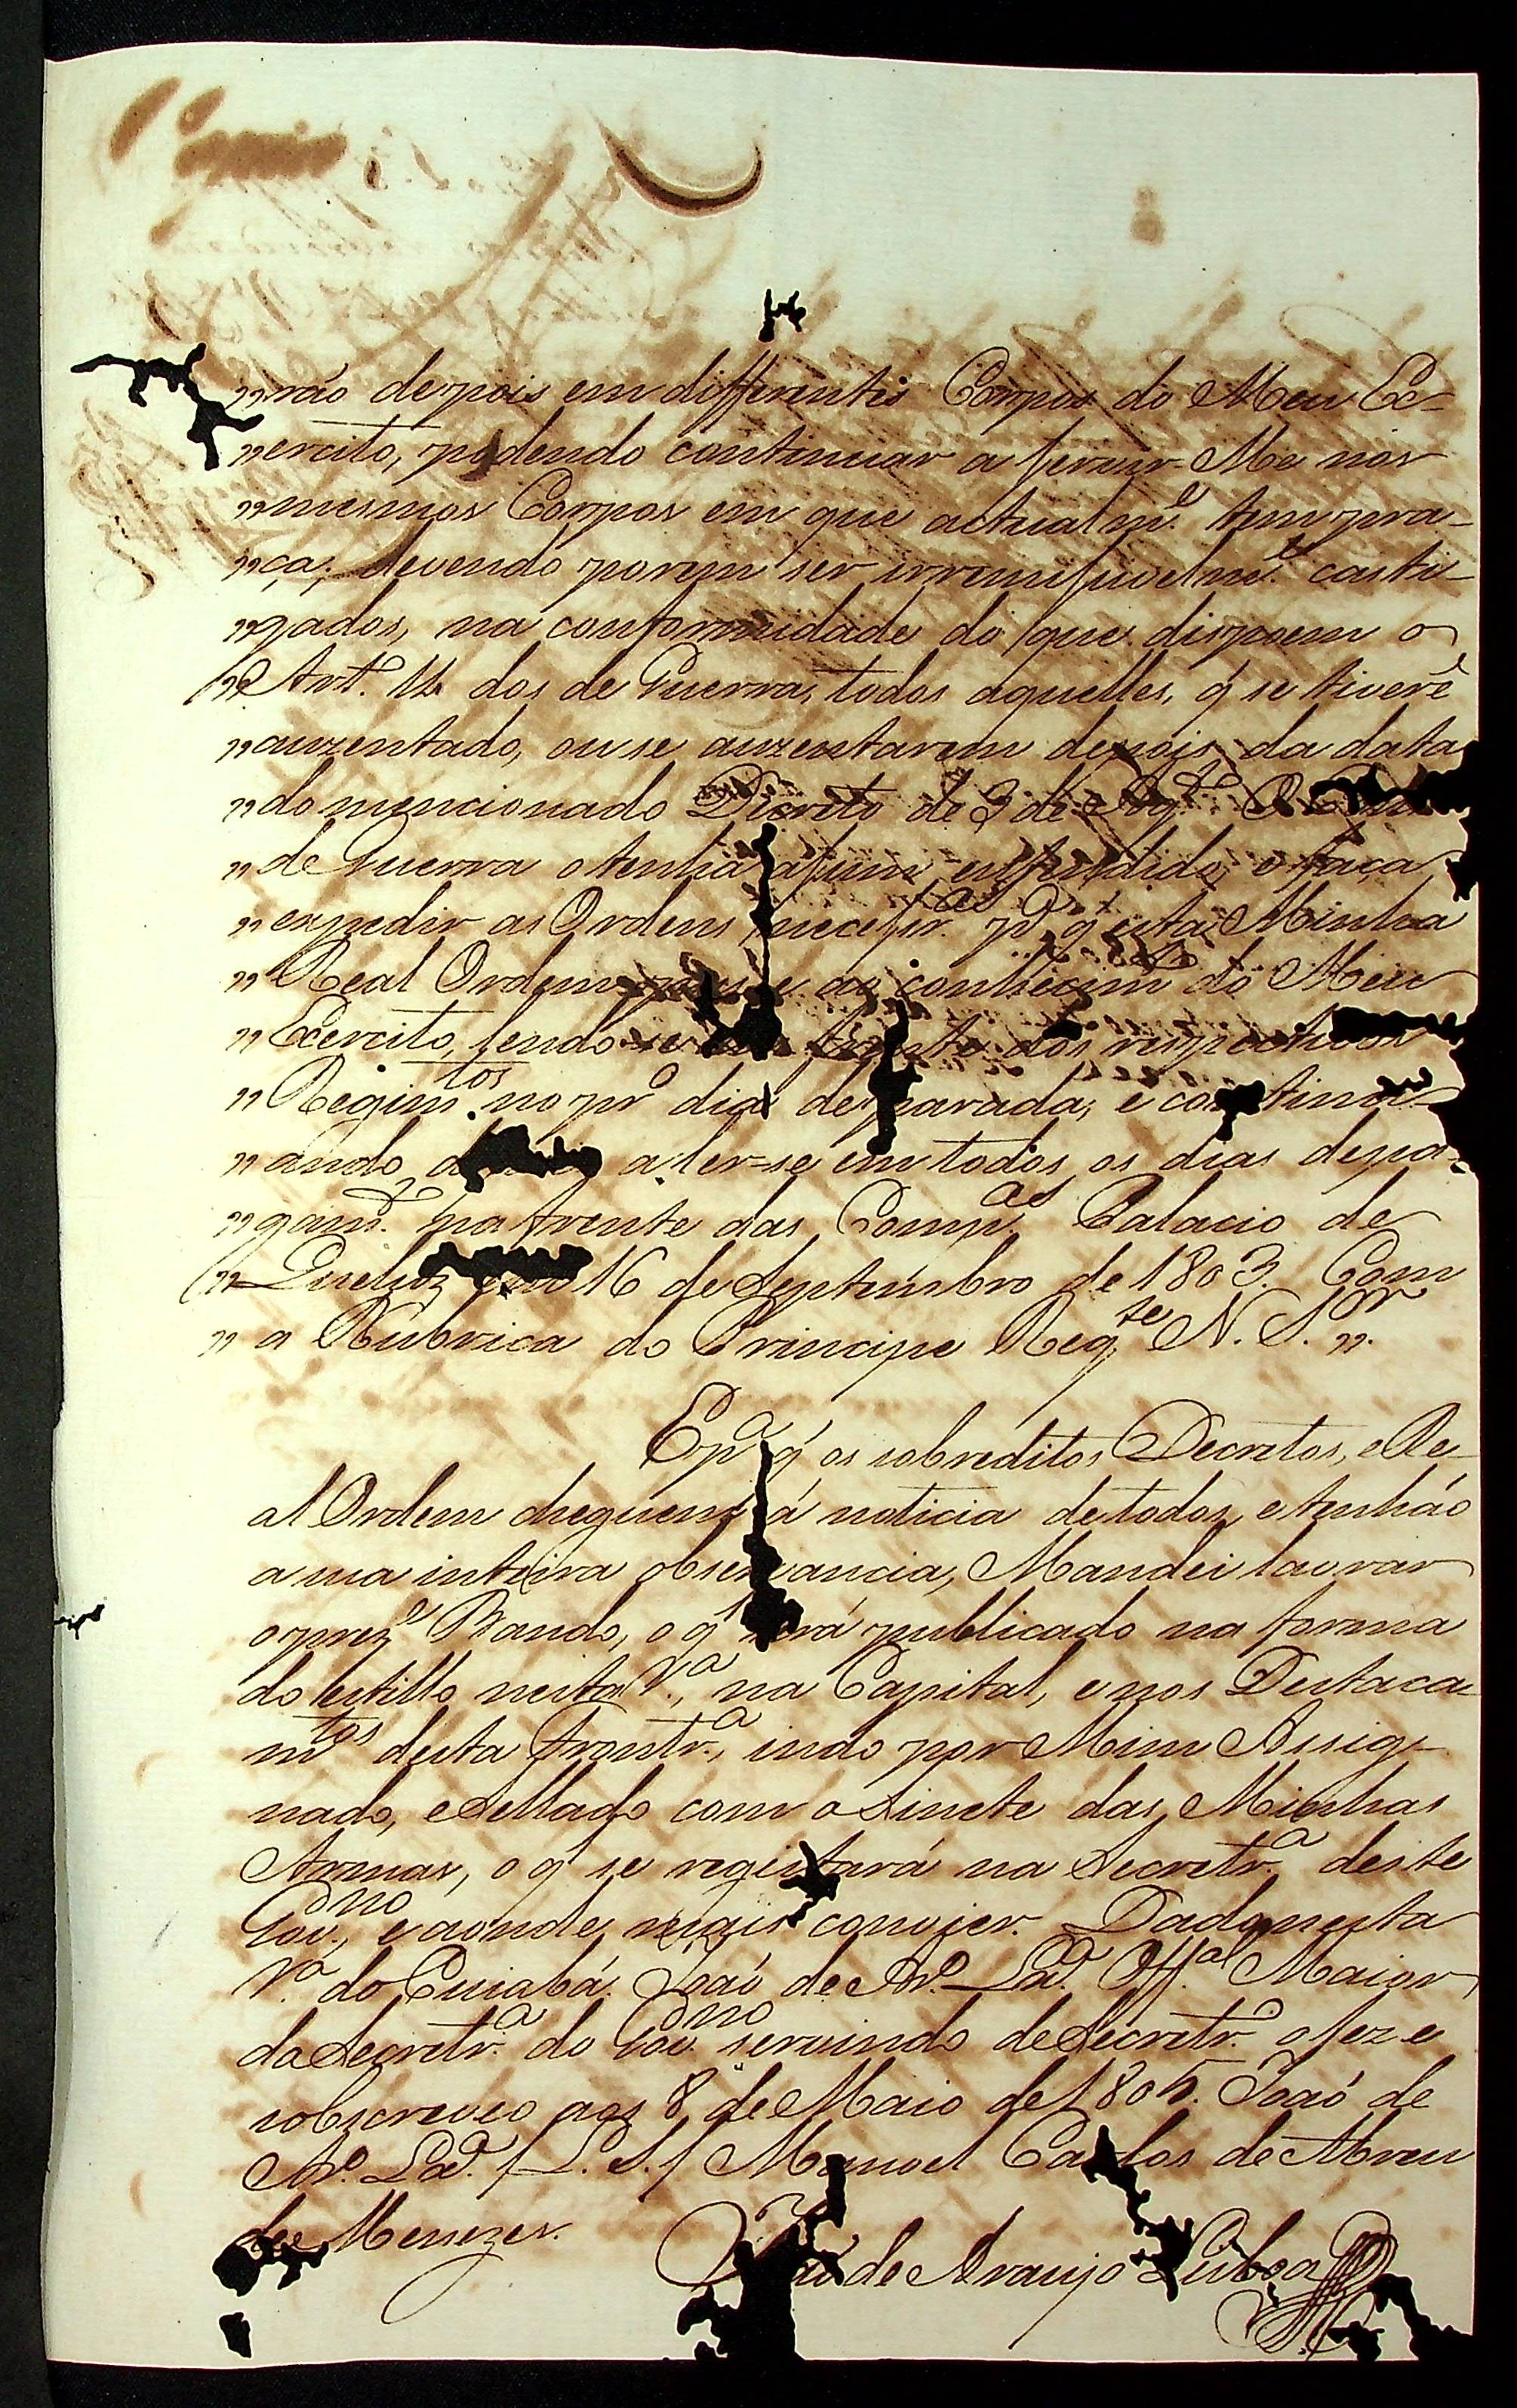 "rão depois em differentes Corpos do Meu Ex-
"ercito, podendo continuar a servir-Me nos
"mesmos Corpos em que actualm.e tem pra-
"ça; devendo porem ser irremissivelm.e casti-
"gados, na conformidade do que dispoem o
"Art.o 14 dos de Guerra, todos aquelles, q̃ se tiverẽ
"auzentado, ou se auzentarem depois da data
"do mencionado Decreto de 3 de Ag.to O
"de Guerra o tenha assim entendido, e faça
"expedir as Ordens necessr.as p.a q̃ esta Minha
"Real Ordem ao conhecim.to do Meu
"Exercito, lendo-se frente dos respectivos
"Regim.tos no pr.o dia de parada, e continu-
"ando a ler-se em todos os dias de pa-
"gam.to na frente das Comp.as Palacio de
"Queluz em 16 de Septembro de 1803. Com
"a Rubrica do Principe Reg.te N. S.or".
E p.a q̃ os sobreditos Decretos, e Re-
al Ordem cheguem á noticia de todos, e tenhão
a sua inteira observancia, Mandei lavrar
o prez.e Bando, o q̃ será publicado na forma
do estillo nesta V.a, na Capital, e nos Destaca-
m.tos desta Frontr.a, indo por Mim Assig-
nado, e Sellado com o Sinete das Minhas
Armas, o q̃ se registará na Secretr.a deste
Gov.no, e aonde mais convier. Dado nesta
V.a do Cuiabá. João de Ar.o Lx.a Off.al Maior
da Secretr.a do Gov.no servindo de Secretr.o o fez e
sobscreveo aos 8 de Maio de 1805. João de
Ar.o Lx.a /L. S./ Manoel Carlos de Abreu
de Menezes.
João de Araujo Lisboa